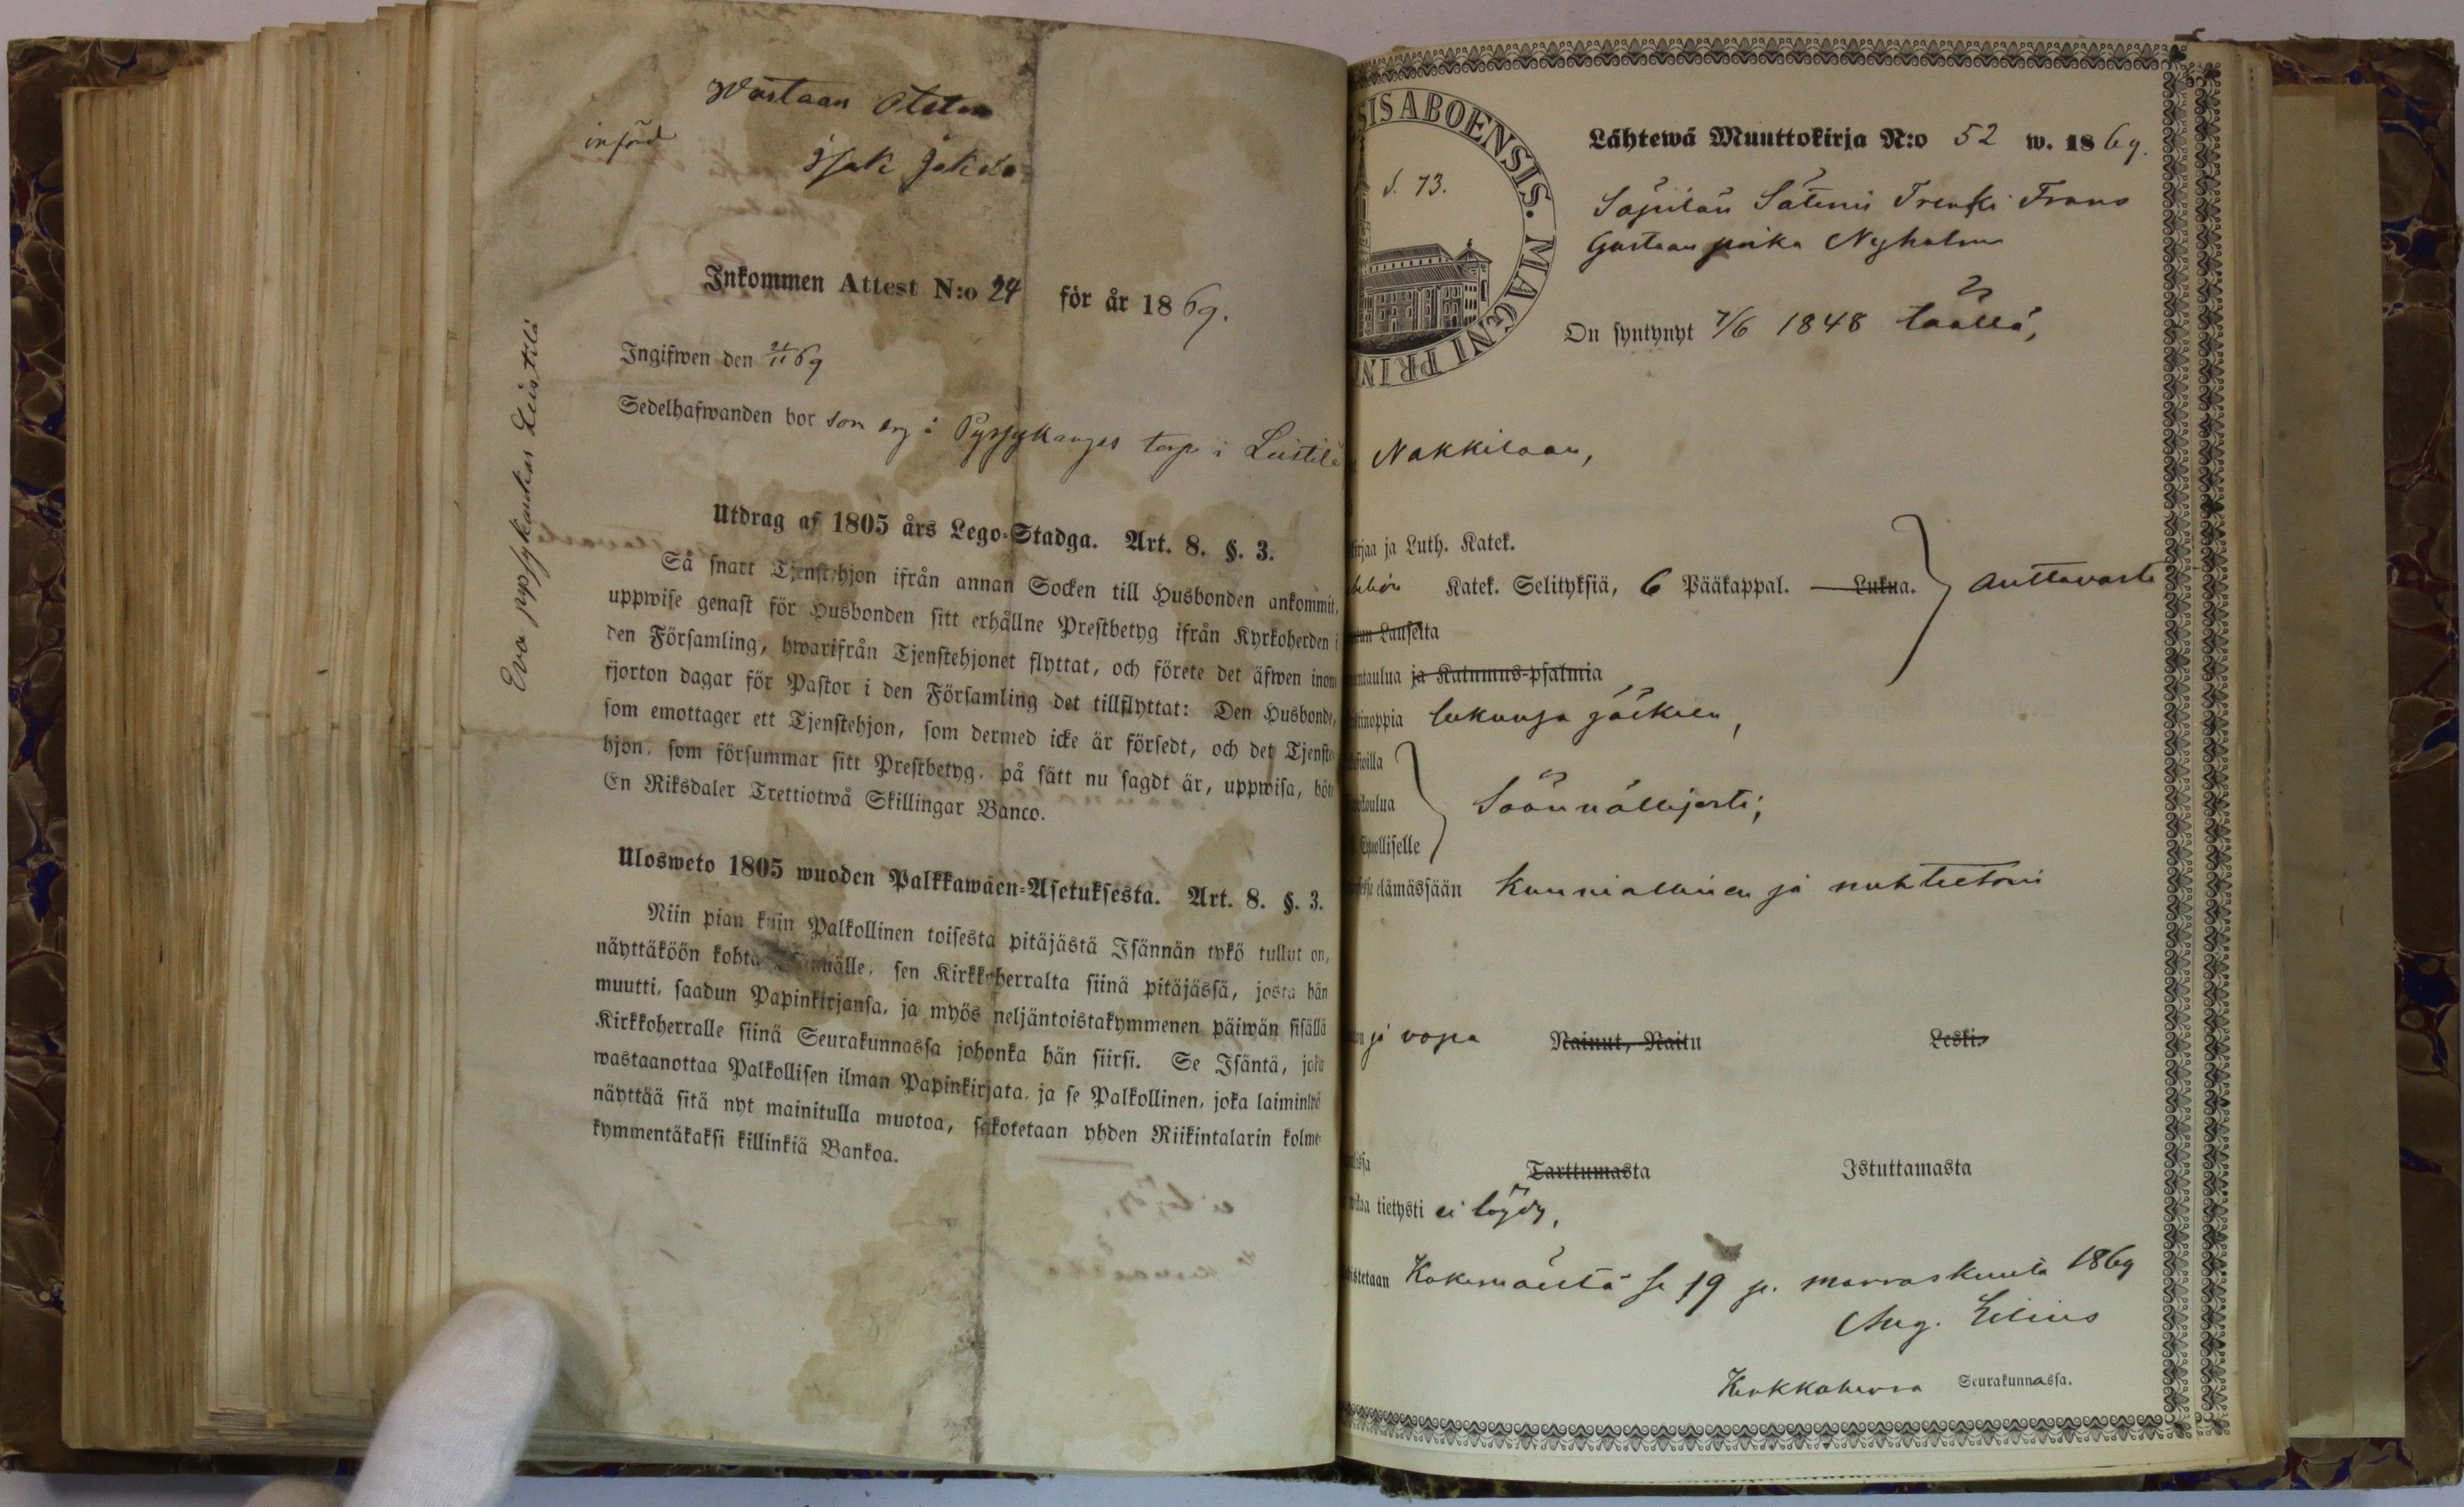 Wastaan Otetun
införd
Isak Jakois
Inkommen Attest N:o 24 för år 1869.
Ingifwen den 21/11 69
Sedelhafwanden bor som drg å Pyssykangas torp i Leistilä
Eva pyssykankas Leistilä
Utdrag af 1805 års Lego-Stadga. Art. 8. §. 3.
Så snart Tjenstehjon ifrån annan Socken till Husbonden ankommit,
uppwise genast för Husbonden sitt erhållne Prestbetyg ifrån Kyrkoherden i
den Församling, hwarifrån Tjenstehjonet flyttat, och förete det äfwen inom
fjorton dagar för Pastor i den Församling det tillflyttat: Den Husbonde,
som emottager ett Tjenstehjon, som dermed icke är försedt, och det Tjenste-
hjon, som försummar sitt Prestbetyg, på sätt nu sagdt är, uppwisa, böte
En Riksdaler Trettiotwå Skillingar Banco.
Ulosweto 1805 wuoden Palkkawäen-Asetuksesta. Art. 8. §. 3.
Niin pian kuin Palkollinen toisesta pitäjästä Isännän tykö tullut on,
näyttäköön kohta Isännälle, sen Kirkkoherralta siinä pitäjässä, josta hän
muutti, saadun Papinkirjansa, ja myös neljäntoistakymmenen päiwän sisällä
Kirkkoherralle siinä Seurakunnassa johonka hän siirsi. Se Isäntä, joka
wastaanottaa Palkollisen ilman Papinkirjata, ja se Palkollinen, joka laiminlyö
näyttää sitä nyt mainitulla muotoa, sakotetaan yhden Riikintalarin kolme-
kymmentäkaksi killinkiä Bankoa.
SISABOENSIS. MAGNI PRIN
S. 73.
Lähtewä Muuttokirja N:o 52 w. 1869.
Säpilän Sätenii Trenki Frans
Gustaan poika Nyholm
On syntynyt 7/6 1848 täällä,
Nakkilaan,
irjaa ja Luth. Katek.
Katek. Selityksiä, 6 Pääkappal. Lukua. auttavasti
Lauselta
ntaulua ja Katumus-psalmia
inoppia lukunsa jälkeen,
silla
Säännöllisesti,
oulua
olliselle
elämässään kunniallinen ja nuhteetoin
ja vapa Nainut, Naitu Leski.
sa Tarttumasta Istuttamasta
kaa tietysti ei löydy,
istetaan Kokemäeltä se 19 p. marraskuuta 1869
Aug. Lilius
Kirkkoherra Seurakunnassa.